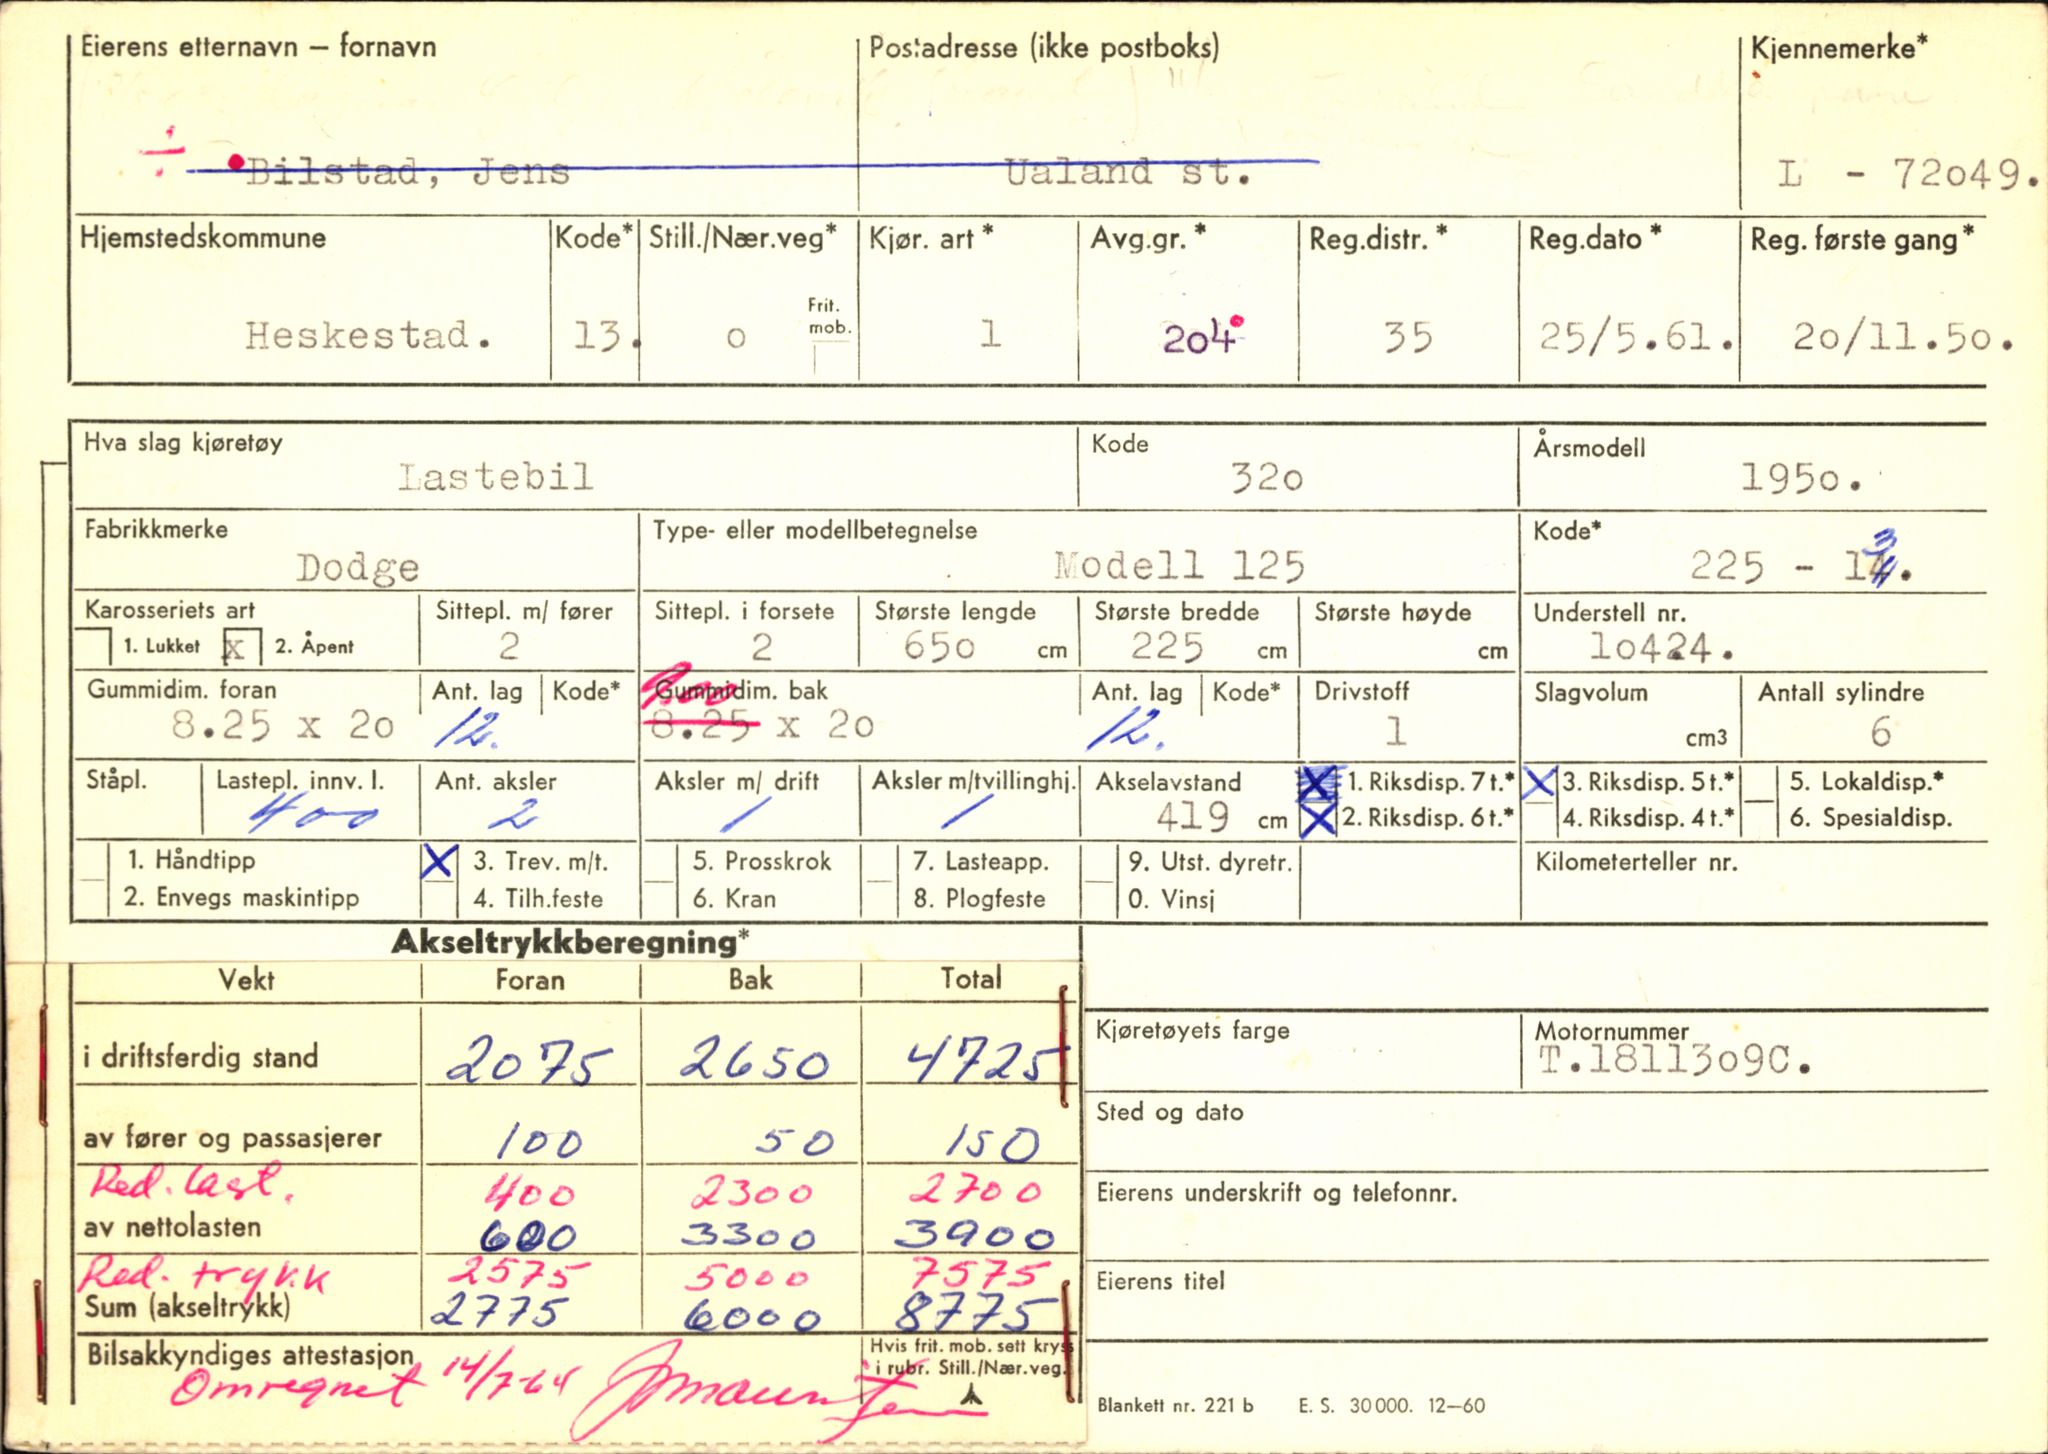 Eierens etternavn – fornavn Postadresse (ikke postboks) Kjennemerke*
Bilstad, Jens Ualand st. L - 72049.
Hjemstedskommune Kode* Still./Nær.veg* Kjør. art* Avg.gr.* Reg.distr.* Reg.dato* Reg. første gang*
Frit. mob.
Heskestad. 13. 0 1 204 35 25/5.61. 20/11.50.
Hva slag kjøretøy Kode Årsmodell
Lastebil 320 1950.
Fabrikkmerke Type- eller modellbetegnelse Kode*
3
Dodge Modell 125 225 - 14.
Karosseriets art Sittepl. m/ fører Sittepl. i forsete Største lengde Største bredde Største høyde Understell nr.
1. Lukket x 2. Åpent 2 2 650 cm 225 cm cm 10424.
Gummidim. foran Ant. lag Kode* Gummidim. bak Ant. lag Kode* Drivstoff Slagvolum Antall sylindre
900
8.25 x 20 12. 8.25 x 20 12. 1 cm3 6
Ståpl. Lastepl. innv. l. Ant. aksler Aksler m/ drift Aksler m/tvillinghj. Akselavstand X 1. Riksdisp. 7 t.* X 3. Riksdisp. 5 t.* 5. Lokaldisp.*
400 2 1 1 419 cm X 2. Riksdisp. 6 t.* 4. Riksdisp. 4 t.* 6. Spesialdisp.
1. Håndtipp X 3. Trev. m/t. 5. Prosskrok 7. Lasteapp. 9. Utst. dyretr. Kilometerteller nr.
2. Envegs maskintipp 4. Tilh.feste 6. Kran 8. Plogfeste 0. Vinsj
Akseltrykkberegning*
Vekt Foran Bak Total
i driftsferdig stand 2075 2650 4725
av fører og passasjerer 100 50 150
Red. last. 400 2300 2700
av nettolasten 600 3300 3900
Red. trykk 2575 5000 7575
Sum (akseltrykk) 2775 6000 8775
Bilsakkyndiges attestasjon
Omregnet 14/7-64
Hvis frit. mob. sett kryss
i rubr. Still./Nær.veg.
Kjøretøyets farge Motornummer
T.1811309C.
Sted og dato
Eierens underskrift og telefonnr.
Eierens titel
Blankett nr. 221 b E. S. 30 000. 12–60